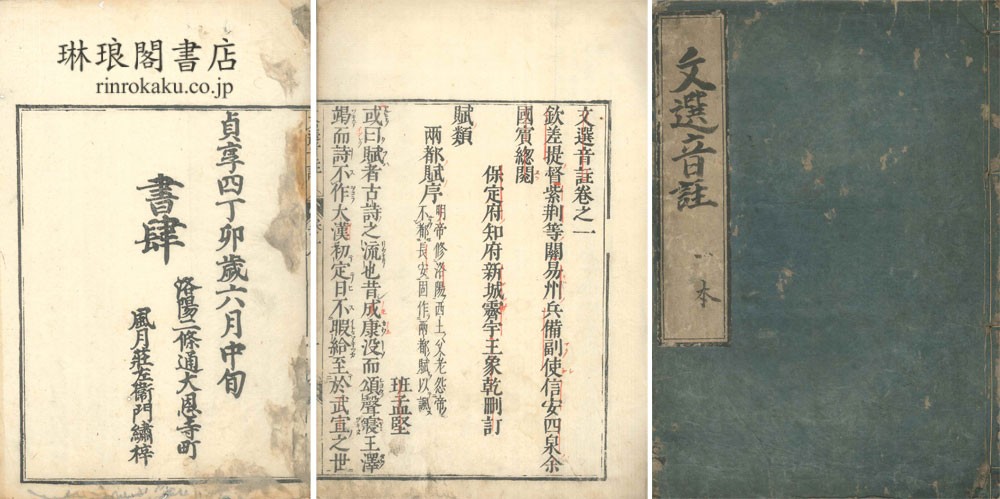 琳琅閣書店
rinrokaku.co.jp
貞享四丁卯歳六月中旬
書肆
洛陽二條通大恩寺町
風月莊左衛門繡梓
文選音註卷之一
欽差提督紫荆等關易州兵備副使信安四泉余
國賓緫閱
保定府知府新城霽宇王象乾刪訂
賦類
兩都賦序
明帝修洛陽西土父老怨帝
不都長安固作兩都賦以諷
班孟堅
或曰賦者古詩之流也昔成康没而頌聲寢王澤
竭而詩不作大漢初定日不暇給至於武宣之世
文選音註
本